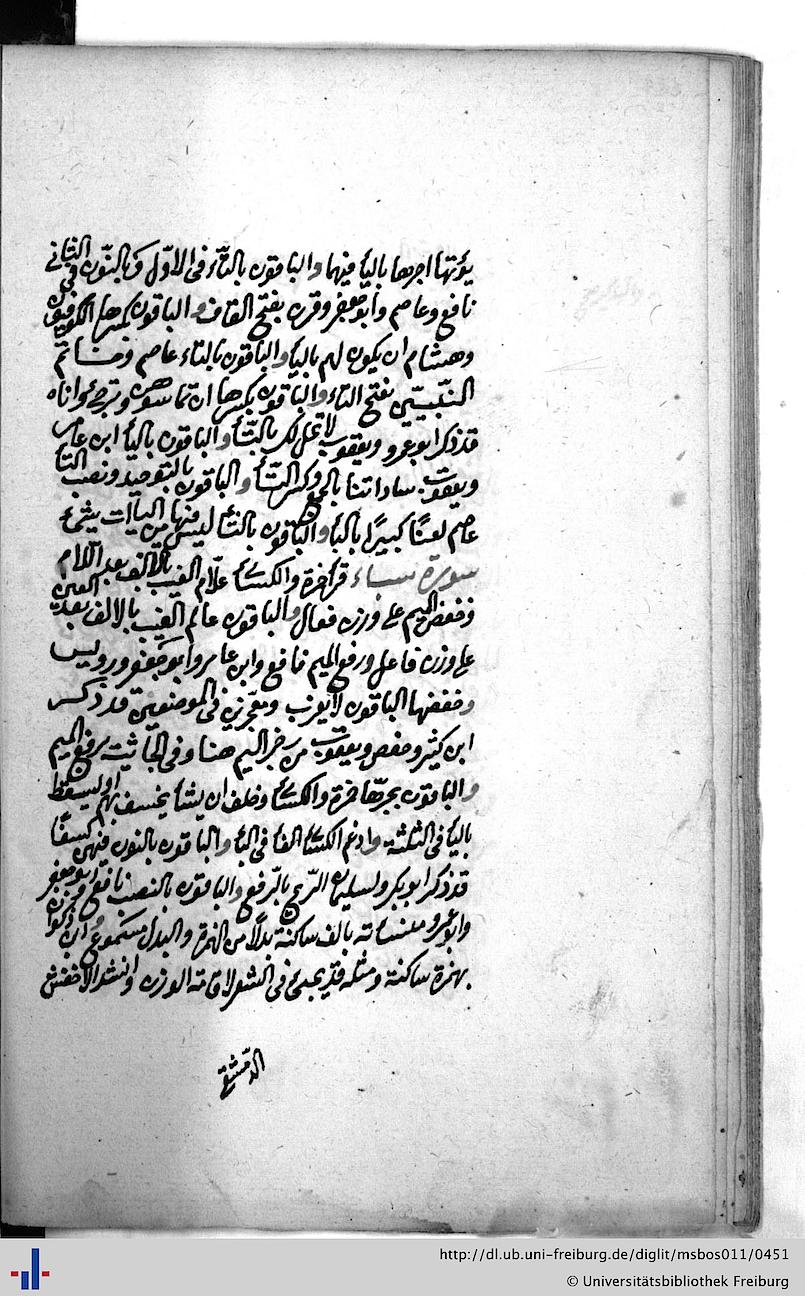 يؤتها اجرها باليأ فيهما والباقون بالتّاء فى الاوّل وبالنّون فى الثانى
نافع وعاصم وابو جعفر وقرن بفتح القاف والباقون بكسرها الكوفيون
وهشام ان يكون لهم باليأ والباقون بالتاء عاصم وخاتم
النّبيّين بفتح التاء والباقون بكسرها ان تماسوهن وترجئ واناه
قد ذكر ابو عمرو ويعقوب لا تحل لك بالتّأ والباقون باليأ ابن عامر
ويعقوب ساداتنا بالجمع وكسر التّأ والباقون بالتوحيد ونصب التأ
عاصم لعنًا كبيرًا بالبأ والباقون بالثأ ليس فيها من اليآات شئ
سورة سباء قرأ حمزة والكسائى علّام الغيب بالالف بعد اللام
وخفض الميم على وزن فعال والباقون عالم الغيب بالالف بعد العين
على وزن فاعل ورفع الميم نافع وابن عامر وابو جعفر ورويس
وخفضها الباقون لا يعزب ومعجزين فى الموضعين قد ذكر
ابن كثير وحفص ويعقوب من رجز اليم هنا وفى الجاثية برفع الميم
والباقون بجرّها حمزة والكسائى وخلف ان يشأ يخسف بهم او يسقط
باليأ فى الثلثة وادغم الكسائى الفأ فى البأ والباقون بالنون فيهن كسفًا
قد ذكر ابو بكر ولسليمان الرّيح بالرّفع والباقون بالنصب نافع وابو جعفر
وابو عمرو منساته بالف ساكنة بدلًا من الهمزة والبدل مسموع ابن ذكوان
بهمزة ساكنة ومثله قد يجئ فى الشعر لاقامة الوزن وانشد الاخفش
الدمشقى
http://dl.ub.uni-freiburg.de/diglit/msbos011/0451
© Universitätsbibliothek Freiburg